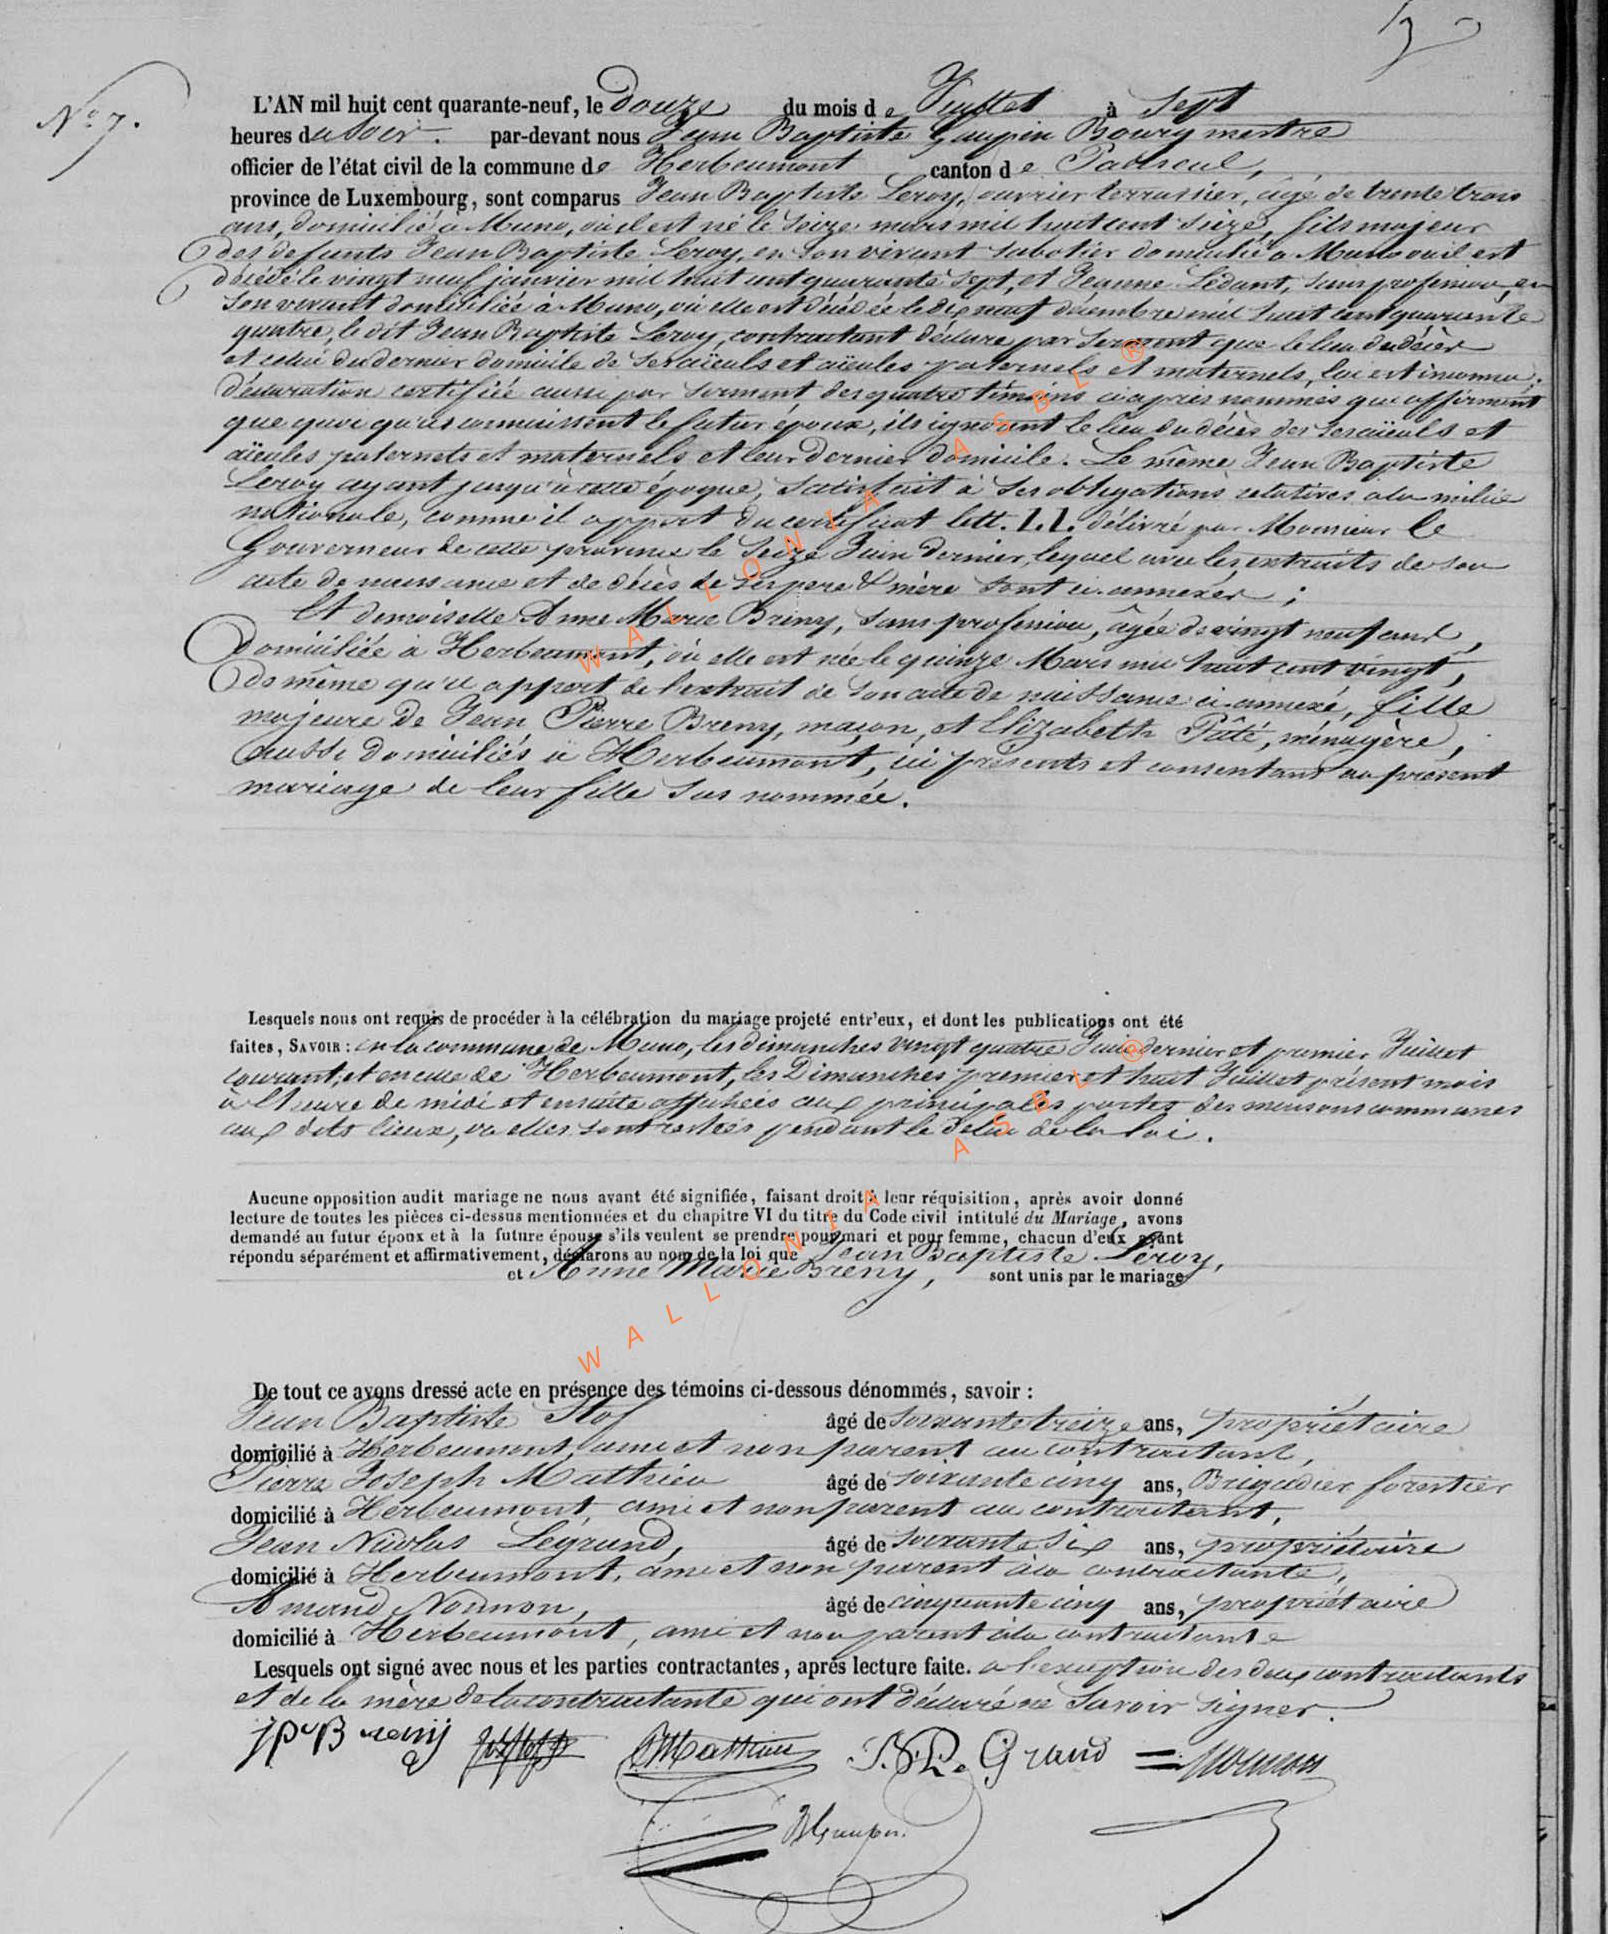 N° 7.
L'AN mil huit cent quarante-neuf, le douze du mois de Juillet à sept
heures du soir. par-devant nous Jean Baptiste Gaupin Bourgmestre
officier de l'état civil de la commune de Herbeumont canton de Paliseul,
province de Luxembourg, sont comparus Jean Baptiste Leroy, ouvrier terrassier, âgé de trente trois
ans, domicilié à Muno, où il est né le seize mars mil huit cent seize, fils majeur
des defunts Jean Baptiste Leroy, en son vivant sabotier domicilié à Muno où il est
décédé le vingt neuf janvier mil huit cent quarante sept, et Jeanne Lédant, sans profession, en
son vivant domiciliée à Muno, où elle est décédée le dix neuf décembre mil huit cent quarante
quatre, le dit Jean Baptiste Leroy, contractant déclare par serment que le lieu du décès
et celui du dernier domicile de ses aïeuls et aïeules paternels et maternels, lui est inconnu;
déclaration certifiée aussi par serment des quatre témoins ci après nommés qui affirment
que quoi qu'ils connaissent le futur époux, ils ignorent le lieu du décès des ses aïeuls et
aïeules paternels et maternels et leur dernier domicile. Le même Jean Baptiste
Leroy ayant jusqu'à cette époque, satisfait à ses obligations relatives à la milice
nationale, comme il appert du certificat litt. I.I. délivré par Monsieur le
Gouverneur de cette province le seize Juin dernier, lequel avec les extraits de son
acte de naissance et de décès de ses père & mère sont ci-annexés;
Et demoiselle Anne Marie Breny, sans profession, âgée de vingt neuf ans,
domiciliée à Herbeumont, où elle est née le quinze Mars mil huit cent vingt,
de même qu'il appert de l'extrait de son acte de naissance ci-annexé, fille
majeure de Jean Pierre Breny, maçon, et Elizabeth Pâté, ménagère,
aussi domiciliés à Herbeumont, ici présents et consentans au présent
mariage de leur fille sus nommée.
Lesquels nous ont requis de procéder à la célébration du mariage projeté entr'eux, et dont les publications ont été
faites, SAVOIR : en la commune de Muno, les dimanches vingt quatre Juin dernier et premier Juillet
courant, et en celle de Herbeumont, les Dimanches premier et huit Juillet présent mois
à l'heure de midi et ensuite affichées aux principales portes des maisons communes
aux dits lieux, où elles sont restées pendant le délai de la loi.
Aucune opposition audit mariage ne nous ayant été signifiée, faisant droit à leur réquisition, après avoir donné
lecture de toutes les pièces ci-dessus mentionnées et du chapitre VI du titre du Code civil intitulé du Mariage, avons
demandé au futur époux et à la future épouse s'ils veulent se prendre pour mari et pour femme, chacun d'eux ayant
répondu séparément et affirmativement, déclarons au nom de la loi que Jean Baptiste Leroy,
et Anne Marie Breny, sont unis par le mariage
De tout ce avons dressé acte en présence des témoins ci-dessous dénommés, savoir :
Jean Baptiste Stof âgé de soixante treize ans, propriétaire
domicilié à Herbeumont, ami et non parent au contractant,
Pierre Joseph Mathieu âgé de soixante cinq ans, Brigadier forestier
domicilié à Herbeumont, ami et non parent au contractant,
Jean Nicolas Legrand, âgé de soixante six ans, propriétaire
domicilié à Herbeumont, ami et non parent à la contractante,
Amand Nonnon, âgé de cinquante cinq ans, propriétaire
domicilié à Herbeumont, ami et non parent à la contractante
Lesquels ont signé avec nous et les parties contractantes, après lecture faite. à l'exception des deux contractants
et de la mère de la contractante qui ont déclaré ne savoir signer.
jPr Breny PJMathieu J. N. Le Grand Nonnon
JBGaupin.
WALLONIA ASBL ®
WALLONIA ASBL ®